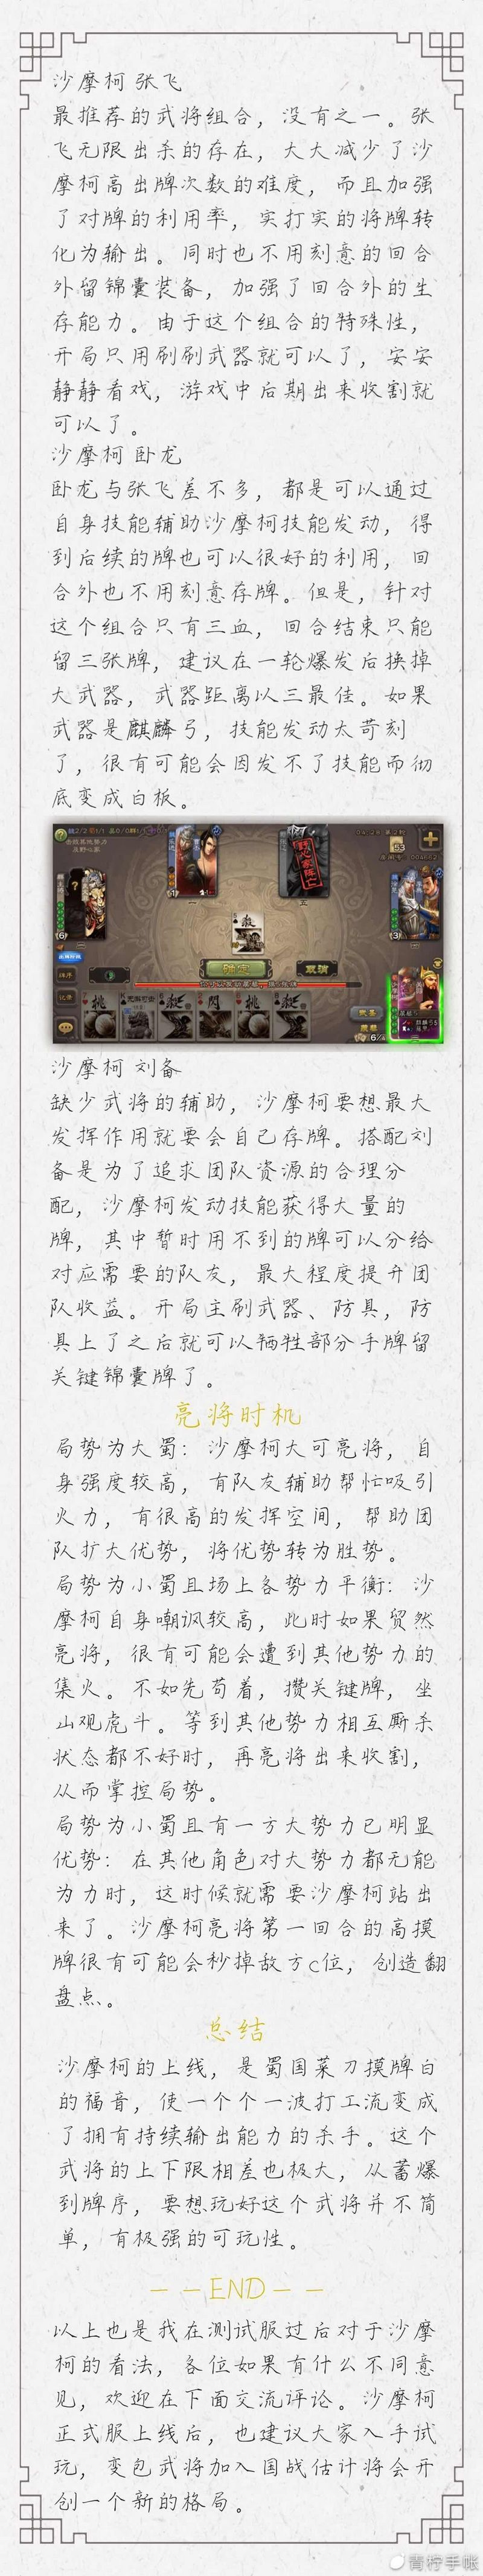 沙摩柯 张飞
最推荐的武将组合，没有之一。张
飞无限出杀的存在，大大减少了沙
摩柯高出牌次数的难度，而且加强
了对牌的利用率，实打实的将牌转
化为输出。同时也不用刻意的回合
外留锦囊装备，加强了回合外的生
存能力。由于这个组合的特殊性，
开局只用刷刷武器就可以了，安安
静静看戏，游戏中后期出来收割就
可以了。
沙摩柯 卧龙
卧龙与张飞差不多，都是可以通过
自身技能辅助沙摩柯技能发动，得
到后续的牌也可以很好的利用，回
合外也不用刻意存牌。但是，针对
这个组合只有三血，回合结束只能
留三张牌，建议在一轮爆发后换掉
大武器，武器距离以三最佳。如果
武器是麒麟弓，技能发动太苛刻
了，很有可能会因发不了技能而彻
底变成白板。
野心家阵亡
杀
确定
取消
牌序
记录
桃
杀
闪
桃
杀
沙摩柯 刘备
缺少武将的辅助，沙摩柯要想最大
发挥作用就要会自己存牌。搭配刘
备是为了追求团队资源的合理分
配，沙摩柯发动技能获得大量的
牌，其中暂时用不到的牌可以分给
对应需要的队友，最大程度提升团
队收益。开局主刷武器、防具，防
具上了之后就可以牺牲部分手牌留
关键锦囊牌了。
亮将时机
局势为大蜀：沙摩柯大可亮将，自
身强度较高，有队友辅助帮忙吸引
火力，有很高的发挥空间，帮助团
队扩大优势，将优势转为胜势。
局势为小蜀且场上各势力平衡：沙
摩柯自身嘲讽较高，此时如果贸然
亮将，很有可能会遭到其他势力的
集火。不如先苟着，攒关键牌，坐
山观虎斗。等到其他势力相互厮杀
状态都不好时，再亮将出来收割，
从而掌控局势。
局势为小蜀且有一方大势力已明显
优势：在其他角色对大势力都无能
为力时，这时候就需要沙摩柯站出
来了。沙摩柯亮将第一回合的高摸
牌很有可能会秒掉敌方c位，创造翻
盘点。
总结
沙摩柯的上线，是蜀国菜刀摸牌白
的福音，使一个个一波打工流变成
了拥有持续输出能力的杀手。这个
武将的上下限相差也极大，从蓄爆
到牌序，要想玩好这个武将并不简
单，有极强的可玩性。
——END——
以上也是我在测试服过后对于沙摩
柯的看法，各位如果有什么不同意
见，欢迎在下面交流评论。沙摩柯
正式服上线后，也建议大家入手试
玩，变包武将加入国战估计将会开
创一个新的格局。
青柠手帐